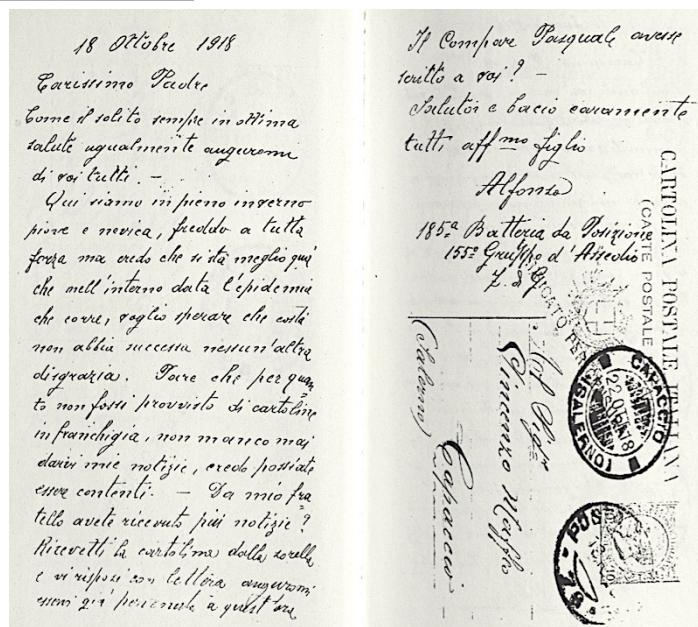 18 Ottobre 1918
Carissimo Padre
Come il solito sempre in ottima
salute ugualmente auguromi
di voi tutti. —
Qui siamo in pieno inverno
piove e nevica, freddo a tutta
forza ma credo che si stà meglio quà
che nell'interno data l'epidemia
che corre, voglio sperare che costà
non abbia successa nessun'altra
disgrazia. Pare che per quan
to non fossi provvisto di cartoline
in franchigia, non manco mai
darvi mie notizie, credo possiate
essere contenti. — Da mio fra
tello avete ricevuto più notizie?
Ricevetti la cartolina dalla sorella
e vi risposi con lettera auguromi
esservi già pervenuta a quest'ora
Il Compare Pasquale avesse
scritto a voi? —
Salutoi e bacio caramente
tutti aff mo figlio
Alfonso
185a Batteria da Posizione
155o Gruppo d'Assedio
Z. di G.
CARTOLINA POSTALE ITALIANA
(CARTE POSTALE
CAPACCIO
(SALERNO)
22.10.18
POS
Al Sigr
Vincenzo Maffio
Capaccio
(Salerno)